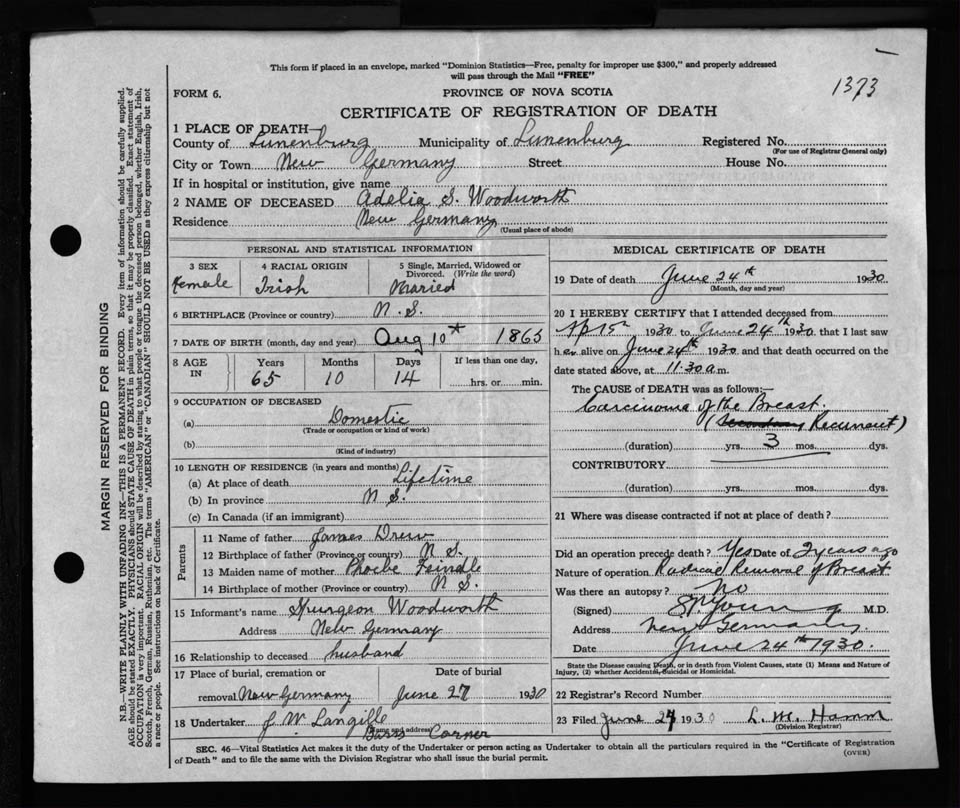 This form if placed in an envelope, marked "Dominion Statistics—Free, penalty for improper use $300," and properly addressed
will pass through the Mail "FREE"
1373
FORM 6.
PROVINCE OF NOVA SCOTIA
CERTIFICATE OF REGISTRATION OF DEATH
1 PLACE OF DEATH—
County of Lunenburg Municipality of Lunenburg Registered No.
(For use of Registrar General only)
City or Town New Germany Street House No.
If in hospital or institution, give name
2 NAME OF DECEASED Adelia S. Woodworth
Residence New Germany
(Usual place of abode)
PERSONAL AND STATISTICAL INFORMATION
3 SEX 4 RACIAL ORIGIN 5 Single, Married, Widowed or
Divorced. (Write the word)
Female Irish Maried
6 BIRTHPLACE (Province or country) N.S.
7 DATE OF BIRTH (month, day and year) Aug 10th 1865
8 AGE IN Years Months Days If less than one day,
65 10 14 hrs. or min.
9 OCCUPATION OF DECEASED
(a) Domestic
(Trade or occupation or kind of work)
(b)
(Kind of industry)
10 LENGTH OF RESIDENCE (in years and months)
(a) At place of death Lifetime
(b) In province N.S.
(c) In Canada (if an immigrant)
Parents
11 Name of father James Drew
12 Birthplace of father (Province or country) N S.
13 Maiden name of mother Phoebe Feindle
14 Birthplace of mother (Province or country) N S.
15 Informant's name Spurgeon Woodworth
Address New Germany
16 Relationship to deceased husband
17 Place of burial, cremation or Date of burial
removal New Germany June 27 1930
18 Undertaker J. W. Langille
(Name and address)
Barss Corner
MEDICAL CERTIFICATE OF DEATH
19 Date of death June 24th 1930
(Month, day and year)
20 I HEREBY CERTIFY that I attended deceased from
1930 to June 24th 1930, that I last saw
her alive on June 24th 1930 and that death occurred on the
date stated above, at 11.30 a.m.
The CAUSE OF DEATH was as follows:—
Carcinoma of the Breast.
(Secondary Recurrent)
(duration) yrs. 3 mos. dys.
CONTRIBUTORY
(duration) yrs. mos. dys.
21 Where was disease contracted if not at place of death?
Did an operation precede death? Yes Date of 2 years ago
Nature of operation Radical Removal of Breast
Was there an autopsy? No
(Signed) Young M.D.
Address New Germany.
Date June 24th 1930.
State the Disease causing Death, or in death from Violent Causes, state (1) Means and Nature of
Injury, (2) whether Accidental, Suicidal or Homicidal.
22 Registrar's Record Number
23 Filed June 24 1930 L. M. Hamm
(Division Registrar)
SEC. 46—Vital Statistics Act makes it the duty of the Undertaker or person acting as Undertaker to obtain all the particulars required in the "Certificate of Registration
of Death" and to file the same with the Division Registrar who shall issue the burial permit.
(OVER)
MARGIN RESERVED FOR BINDING
N.B.—WRITE PLAINLY WITH UNFADING INK—THIS IS A PERMANENT RECORD. Every item of information should be carefully supplied.
AGE should be stated EXACTLY. PHYSICIANS should STATE CAUSE OF DEATH in plain terms, so that it may be properly classified. Exact statement of
OCCUPATION is very important. RACIAL ORIGIN will be described by stating to what people or tongue the deceased person belonged, whether English, Irish,
Scotch, French, German, Russian, Ruthenian, etc. The terms "AMERICAN" or "CANADIAN" SHOULD NOT BE USED as they express citizenship but not
a race or people. See instructions on back of Certificate.